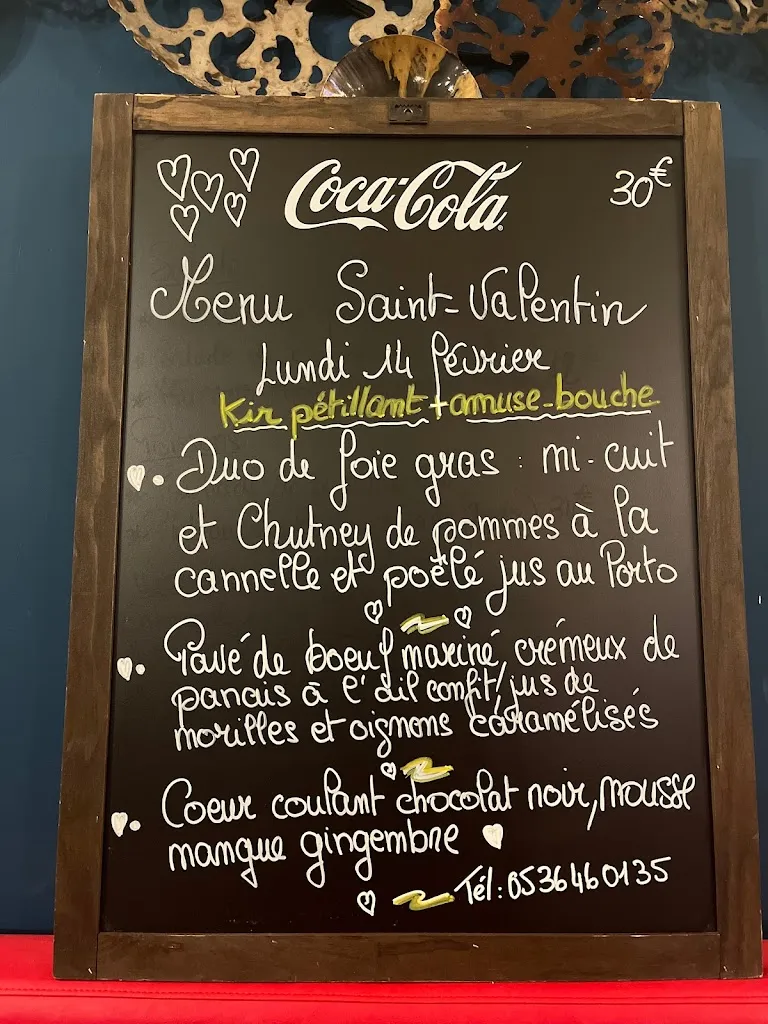 Coca-Cola
30€
Menu Saint-Valentin
Lundi 14 février
Kir pétillant + amuse-bouche
• Duo de foie gras : mi-cuit
et Chutney de pommes à la
cannelle et poêlé jus au Porto
• Pavé de boeuf mariné, crémeux de
panais à l'ail confit, jus de
morilles et oignons caramélisés
• Coeur coulant chocolat noir, mousse
mangue gingembre
Tél : 0536460135